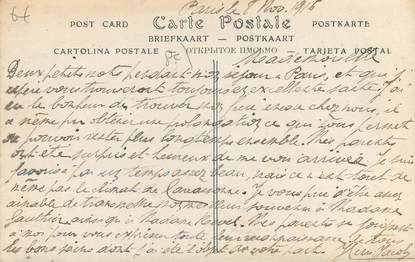 Paris le 8 Nov. 1915
POST CARD Carte Postale POSTKARTE
BRIEFKAART — POSTKAART
CARTOLINA POSTALE ОТКРЫТОЕ ПИСЬМО TARJETA POSTAL
Mademoiselle
Deux petits mots pendant mon séjour à Paris, et qui j'
espère vous trouveront toujours en excellente santé. J'ai
eu le bonheur de trouver mon père chez nous, il
a même pu obtenir une prolongation ce qui nous permet
de pouvoir rester plus longtemps ensemble. Mes parents
ont été surpris et heureux de me voir arriver. Je suis
favorisé par un temps assez beau, mais ce n'est tout de
même pas le climat de Je vous prie d'être assez
aimable de transmettre mon meilleur souvenir à Madame
Gauthier ainsi qu'à Madame Mes parents se joignent
à moi pour vous exprimer toute leur reconnaissance de tous
les bons soins dont j'ai été l'objet de votre part.